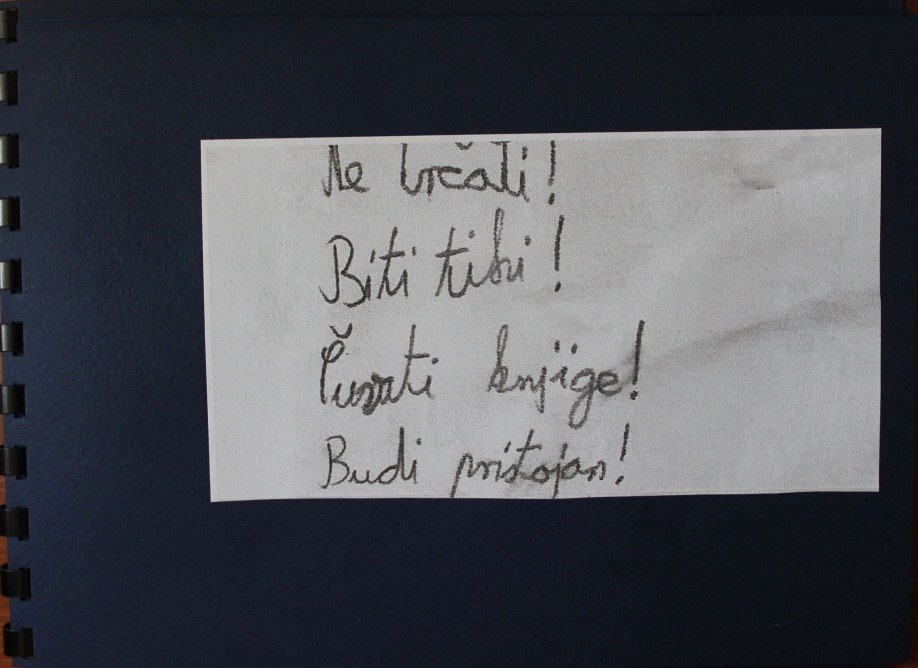 Ne trčati!
Biti tihi!
Čuvati knjige!
Budi pristojan!